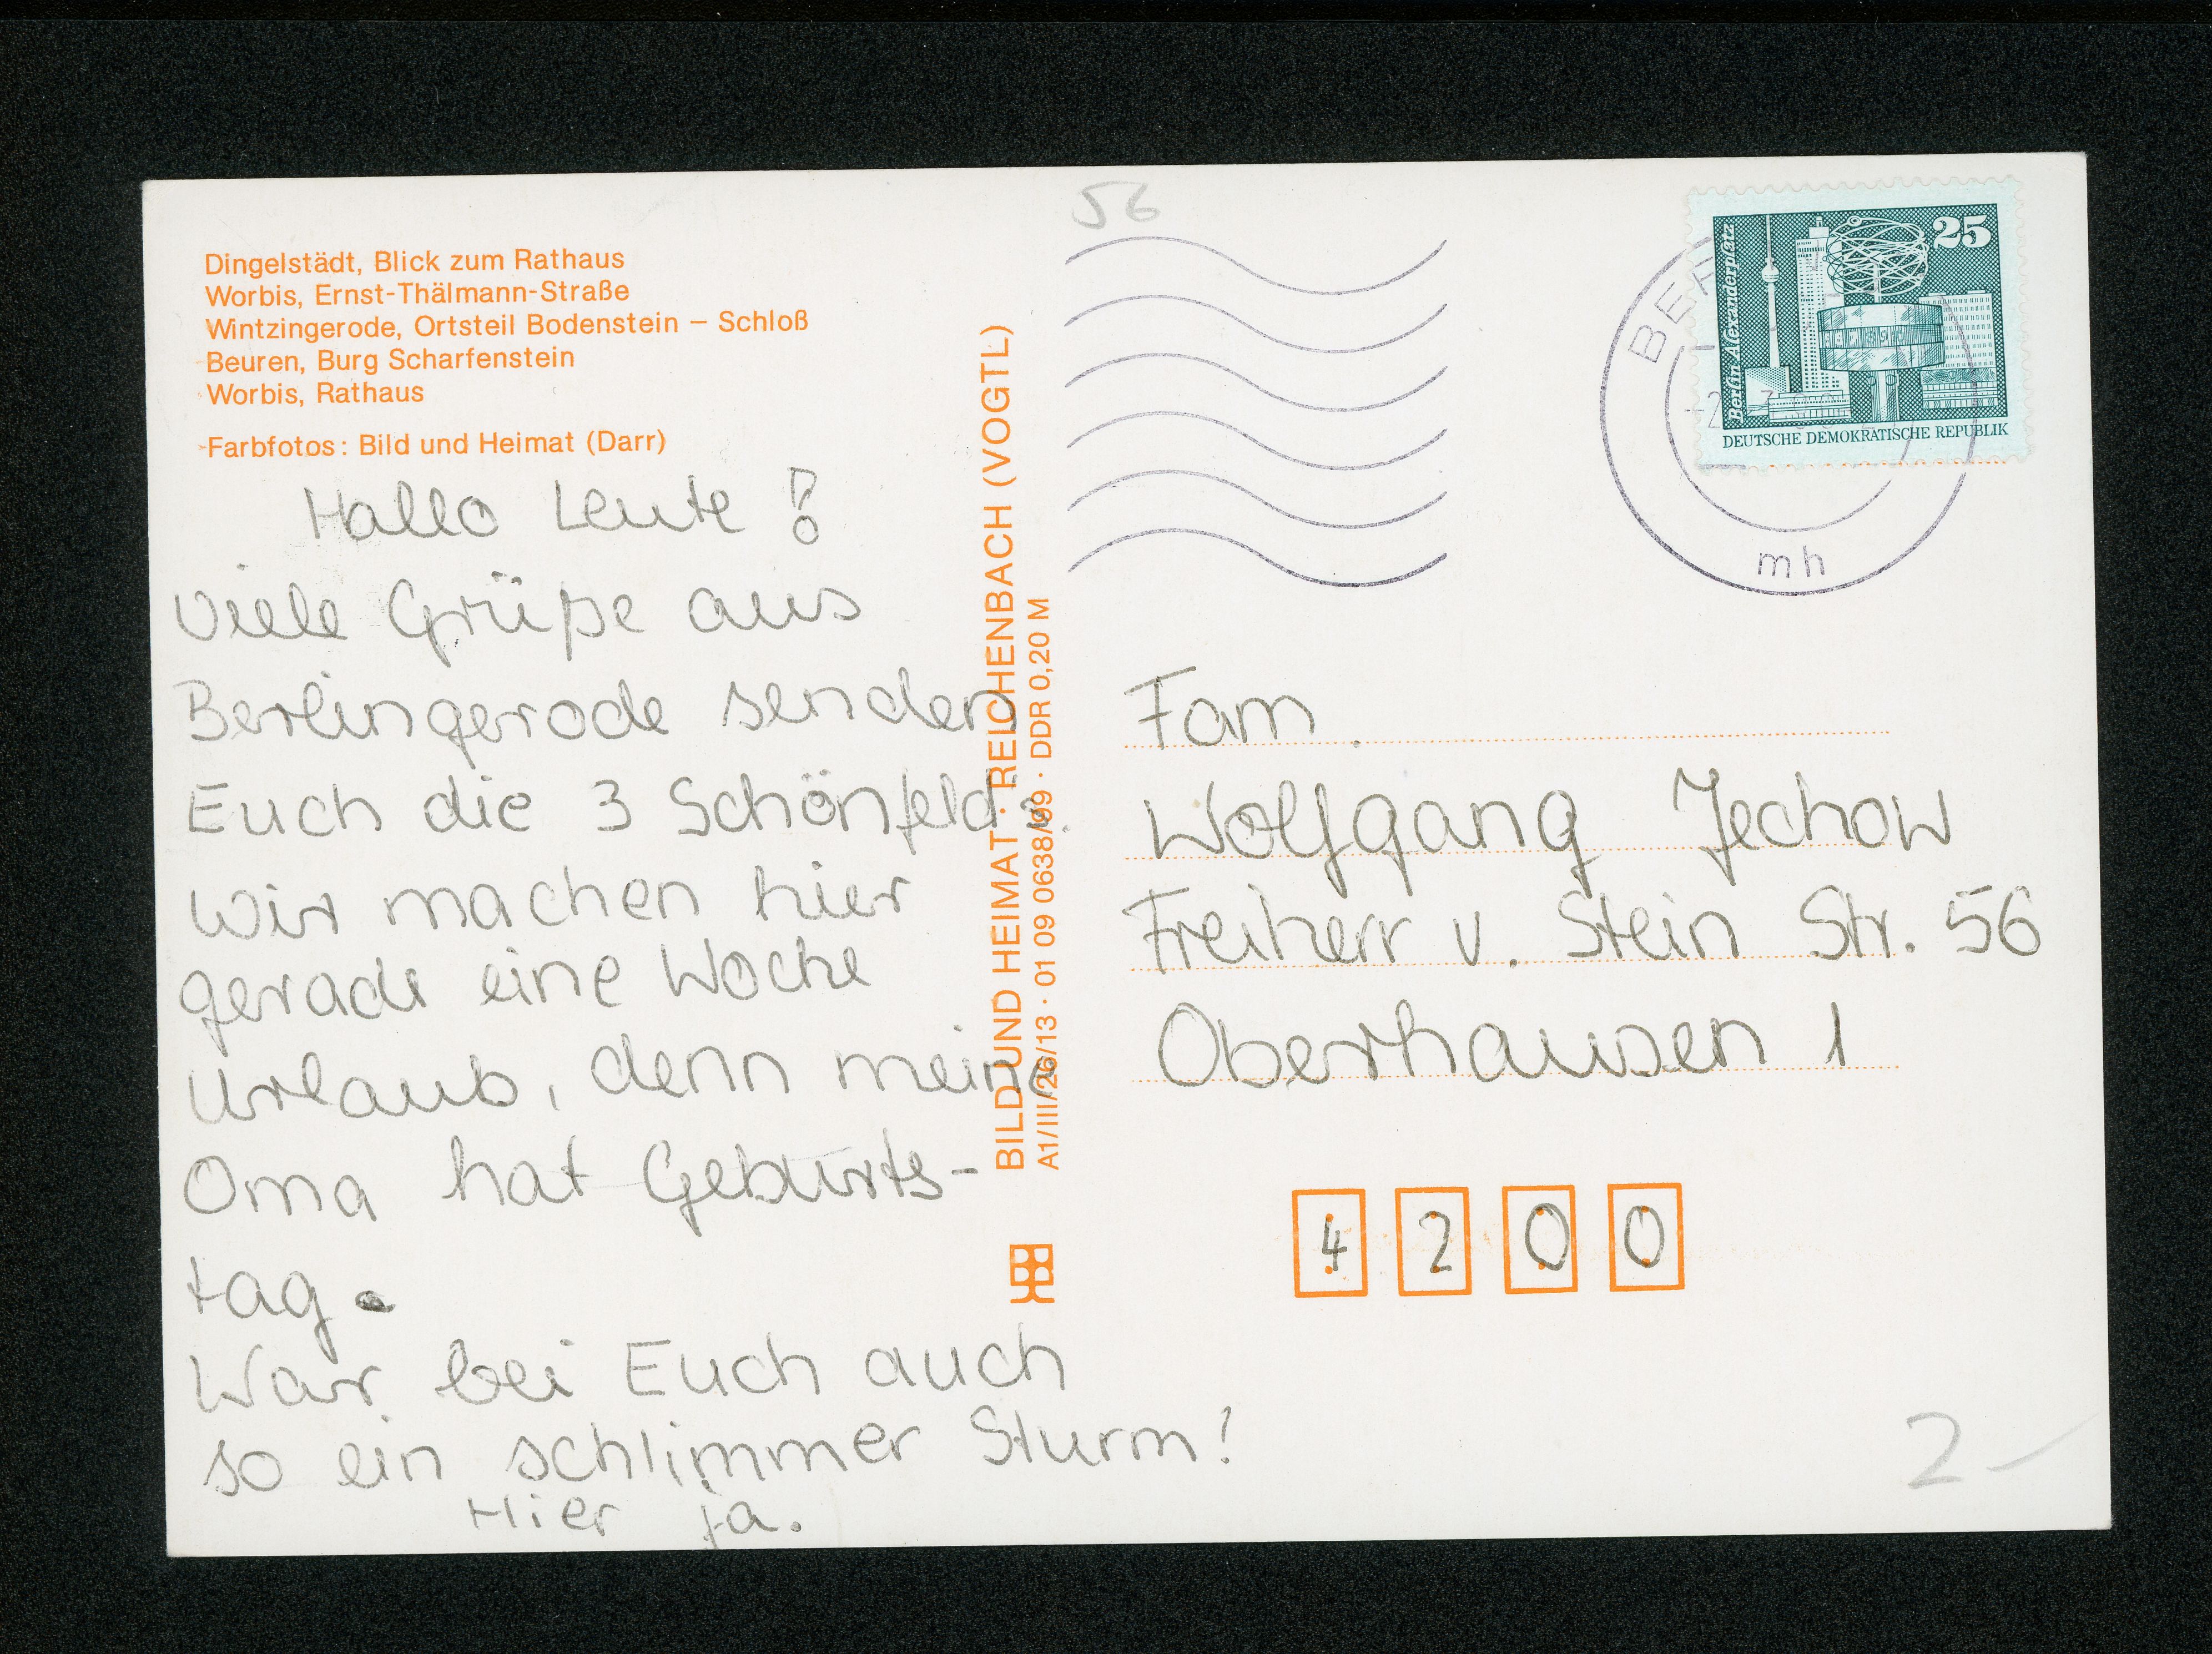 Dingelstädt, Blick zum Rathaus
Worbis, Ernst-Thälmann-Straße
Wintzingerode, Ortsteil Bodenstein – Schloß
Beuren, Burg Scharfenstein
Worbis, Rathaus
Farbfotos: Bild und Heimat (Darr)
Hallo Leute!
Viele Grüße aus
Berlingerode senden
Euch die 3 Schönfeld's.
Wir machen hier
gerade eine Woche
Urlaub, denn meine
Oma hat Geburts-
tag.
War bei Euch auch
so ein schlimmer Sturm!
Hier ja.
BILD UND HEIMAT · REICHENBACH (VOGTL)
A1/III/26/13 · 01 09 0638/99 · DDR 0,20 M
56
25
Berlin Alexanderplatz
DEUTSCHE DEMOKRATISCHE REPUBLIK
mh
Fam.
Wolfgang Jechow
Freiherr v. Stein Str. 56
Oberhausen 1
4200
2–